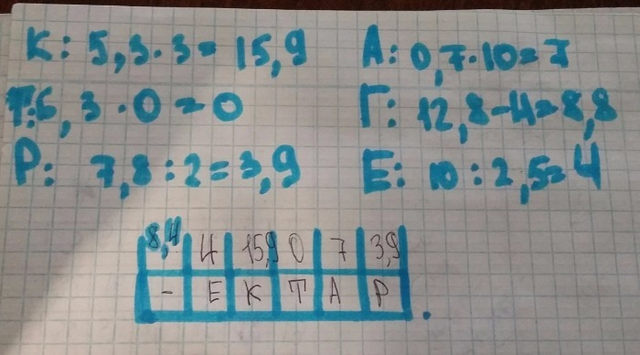 К: 5,3·3=15,9
А: 0,7·10=7
Т: 5,3·0=0
Г: 12,8-4=8,8
Р: 7,8:2=3,9
Е: 10:2,5=4
8,4 4 15,9 0 7 3,9
- Е К Т А Р.